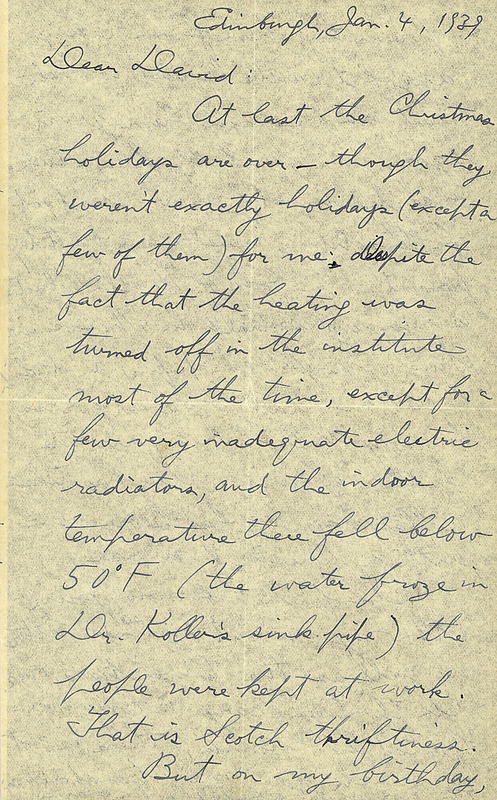 Edinburgh, Jan. 4, 1939
Dear David:
At last the Christmas
holidays are over – though they
weren't exactly holidays (except a
few of them) for me. Despite the
fact that the heating was
turned off in the institute
most of the time, except for a
few very inadequate electric
radiators, and the indoor
temperature there fell below
50°F (the water froze in
Dr. Koller's sink pipe) the
people were kept at work.
That is Scotch thriftiness.
But on my birthday,